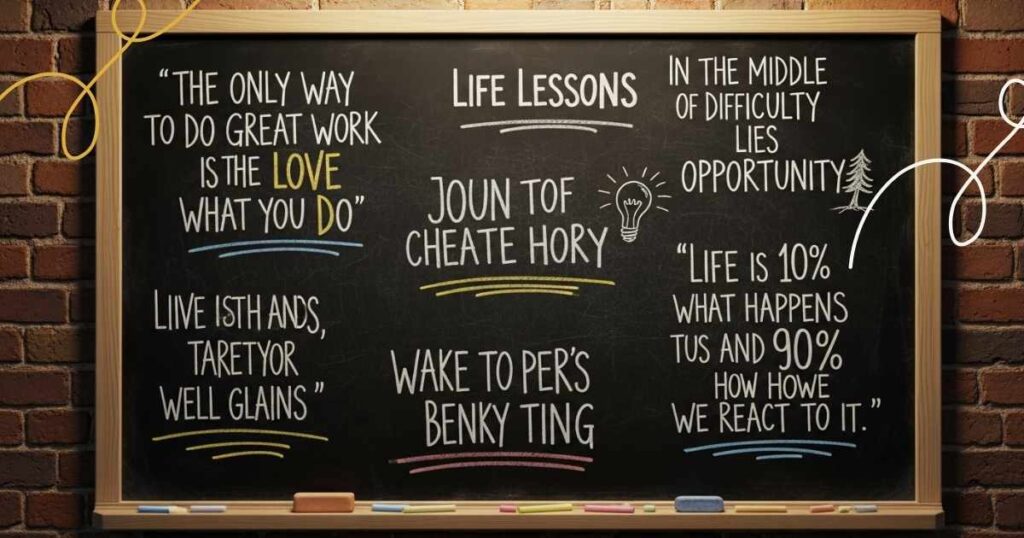 “THE ONLY WAY
TO DO GREAT WORK
IS THE LOVE
WHAT YOU DO”
LIFE LESSONS
IN THE MIDDLE
OF DIFFICULTY
LIES
OPPORTUNITY
JOUN TOF
CHEATE HORY
“LIFE IS 10%
WHAT HAPPENS
TUS AND 90%
HOW HOWE
WE REACT TO IT.”
LIIVE ISTH ANDS,
TARETYOR
WELL GLAINS”
WAKE TO PER'S
BENKY TING